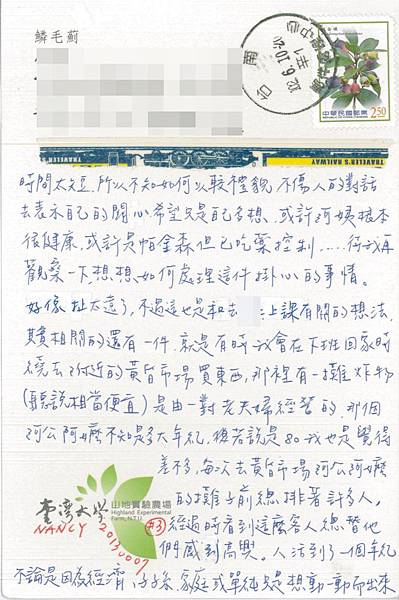 鱗毛薊
台南
102.6.10.20
中華民國郵票
REPUBLIC OF CHINA
2.50
TRAVELER
TRAVELER'S RAILWAY
時間太短,所以不知如何以較禮貌、不傷人的對話
去表示自己的關心希望只是自己多想,或許阿姨根本
很健康,或許是帕金森但已吃藥控制......待我再
觀察一下,想想如何處理這件掛心的事情。
好像扯太遠了,不過這也是和去 上課有關的想法,
其實相關的還有一件,就是有時我會在下班回家時
繞去附近的黃昏市場買東西,那裡有一攤炸物
(聽說相當便宜)是由一對老夫婦經營的,那個
阿公阿嬤不知是多大年紀,穆老說是80我也是覺得
差不多,每次去黃昏市場阿公阿嬤
的攤子前總排著許多人,
經過時看到這麼多客人總替他
們感到高興。人活到了一個年紀
不論是因為經濟、子孫、家庭或單純只是想動一動而出來
臺灣大學
山地實驗農場
Highland Experimental
Farm, N.T.U.
NANCY
20130607
#3